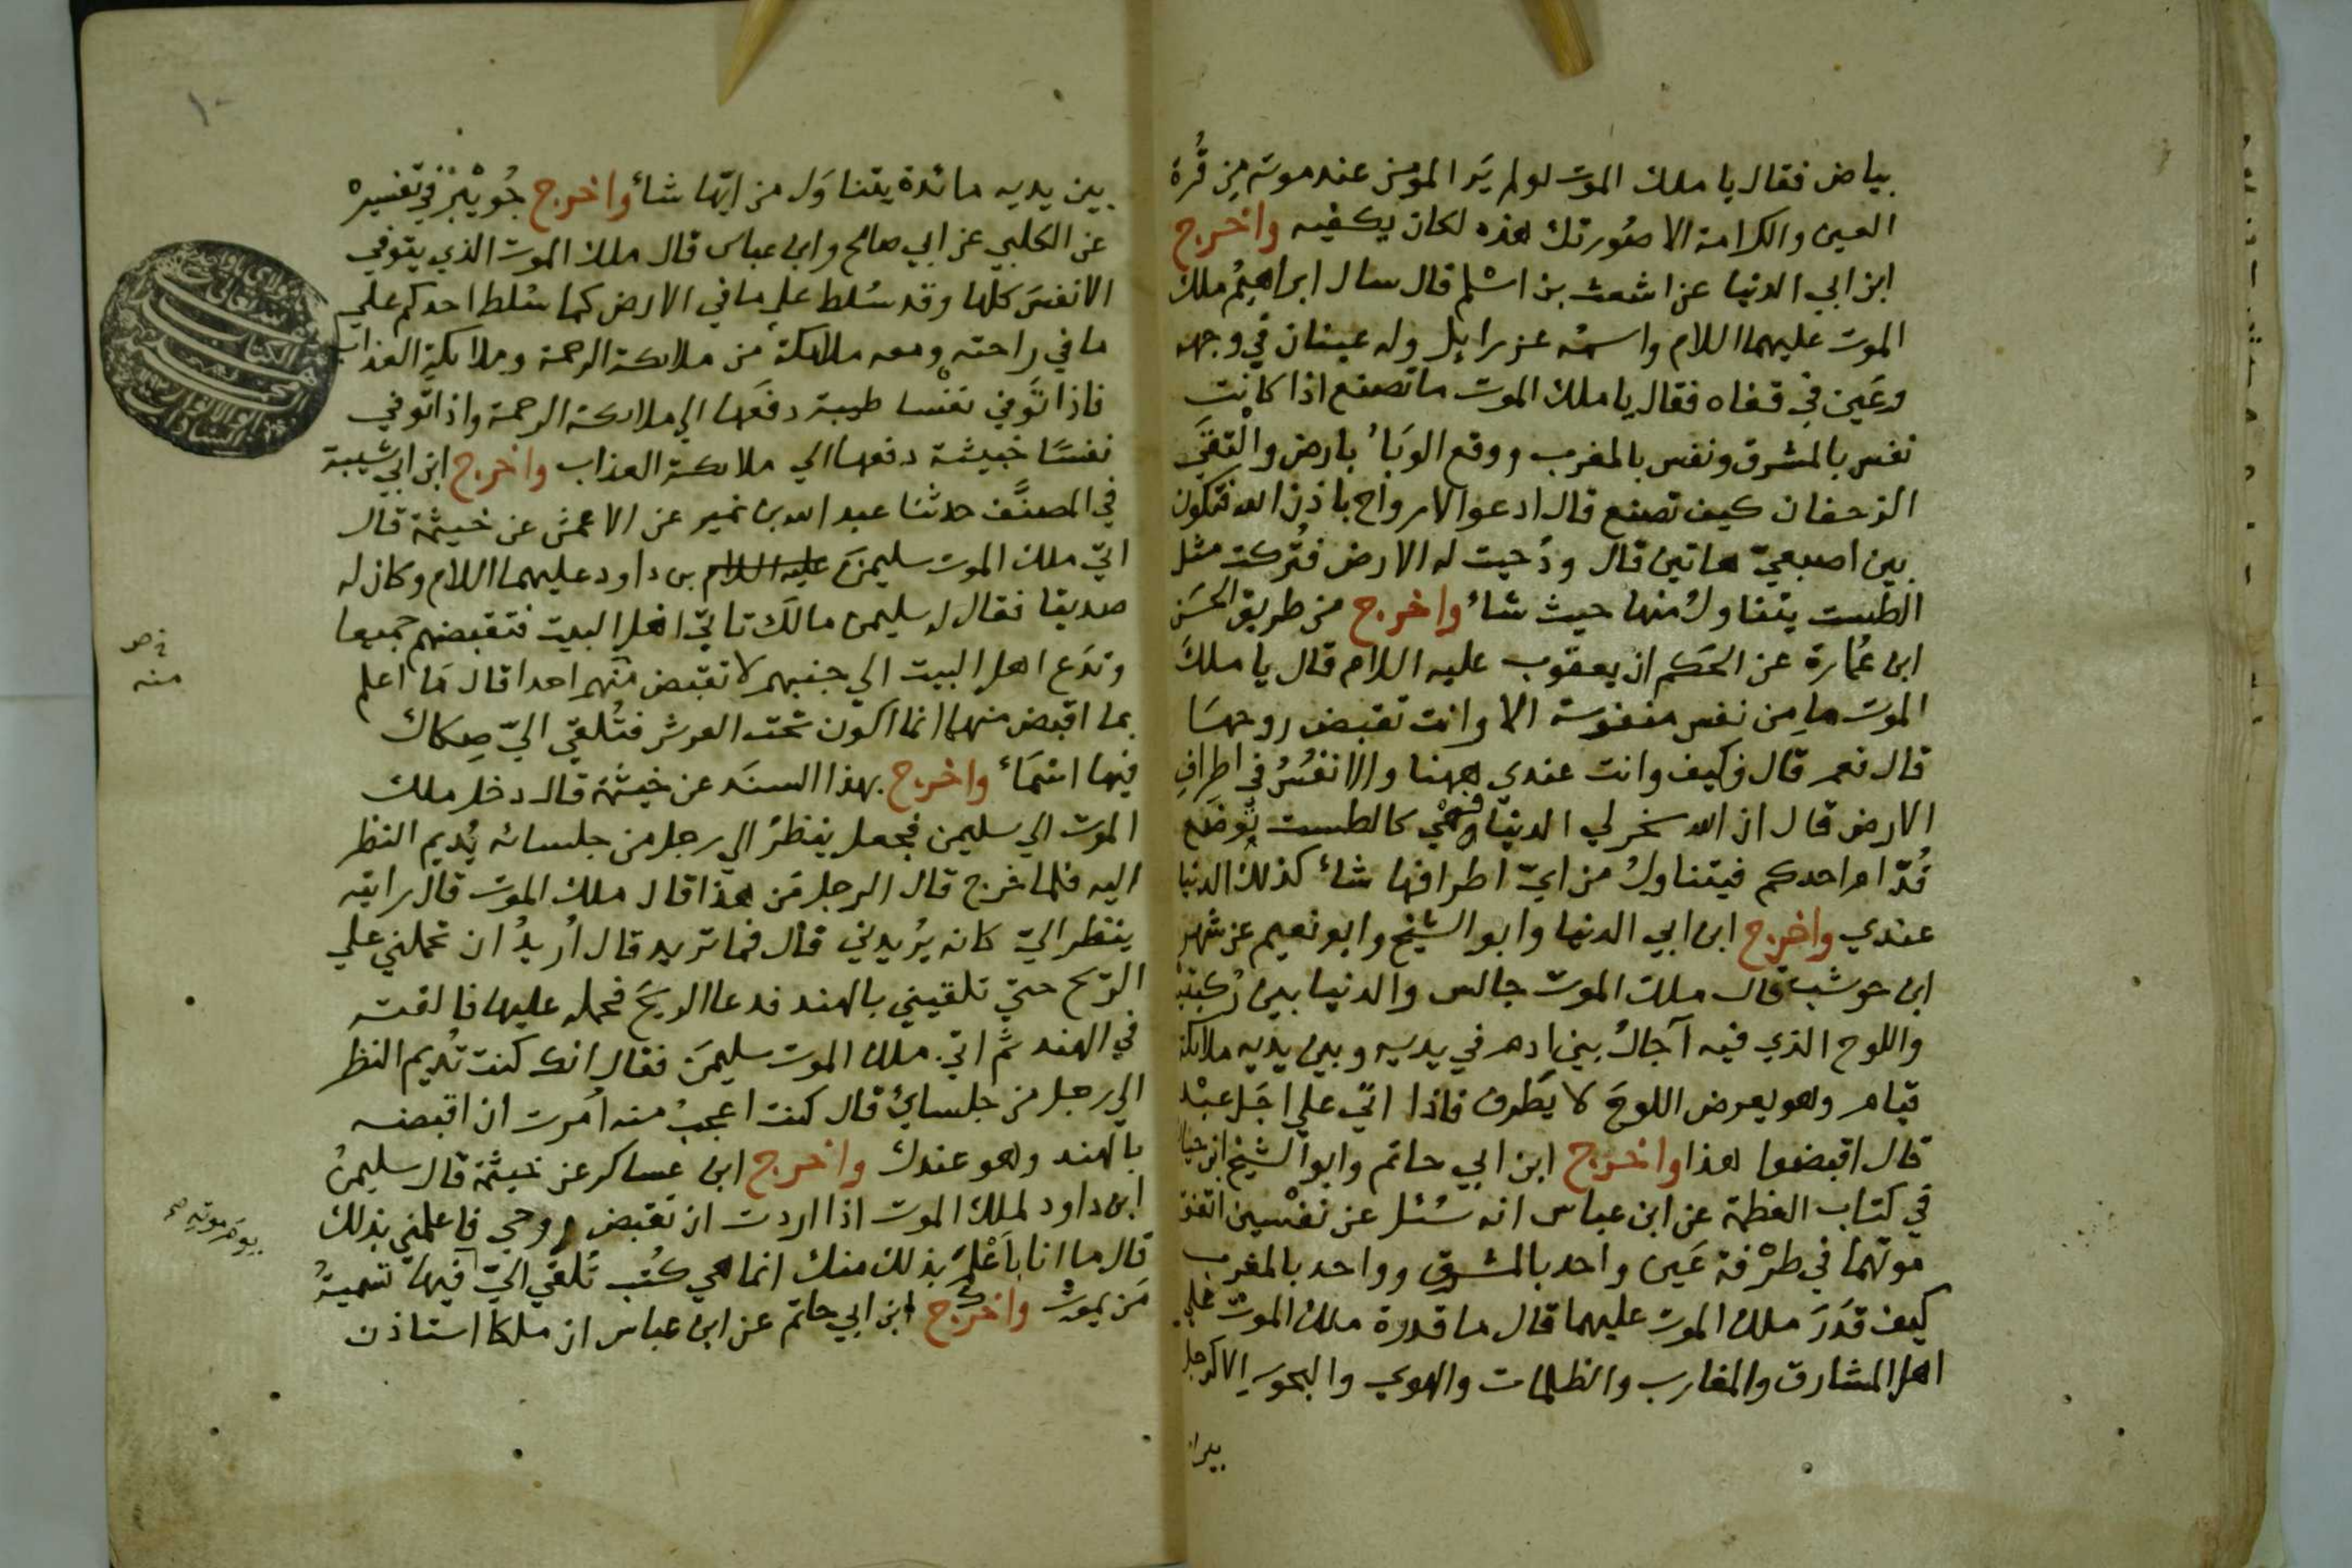 بياض فقال يا ملك الموت لو لم يَر المؤمن عند موته من قُرة
العين والكرامة الا صُورتك هذه لكان يكفيه واخرج
ابن ابي الدنيا عن اشعث بن اسْلم قال سال ابراهيمُ ملك
الموت عليهما السلام واسمه عزرايل وله عينان في وجهه
وعَين في قفاه فقال يا ملك الموت ما تصنع اذا كانت
نفس بالمشرق ونفس بالمغرب ووقع الوبَاءُ بارض والتقَى
الزحفان كيف تصنع قال ادعو الارواح باذن الله فتكون
بين اصبعيّ هاتين قال ودُحيت له الارض فتُركت مثل
الطست يتناولُ منها حيث شاءُ واخرج من طريق الحسَن
ابن عُمارة عن الحكم ان يعقوب عليه السلام قال يا ملكَ
الموت ما من نفس منفوسة الا وانت تقبض روحهَا
قال نعم قال فكيف وانت عندي ههنا والانفُسُ في اطرافِ
الارض قال ان الله سخر لي الدنيا فهْي كالطست تُوضَع
قُدّام احدكم فيتناولُ من ايّ اطرافها شاءَ كذلك الدنيا
عندي واخرج ابن ابي الدنيا وابو الشيخ وابو نعيم عن شهر
ابن حوشب قال ملك الموت جالس والدنيا بين رُكبتيه
واللوح الذي فيه آجالُ بني ادم في يديه وبين يديه ملائكة
قيام وهو يعرض اللوحَ لا يَطرف فاذا اتَى على اجَل عبْد
قال اقبضوا هذا واخرج ابن ابي حاتم وابو الشيخ ابن حيان
في كتاب العظمة عن ابن عباس انه سُئل عن نفْسين اتفق
موتهما في طرْفة عَين واحد بالمشرق وواحد بالمغرب
كيف قَدَرَ ملك الموت عليهما قال ما قدرة ملك الموت على
اهل المشارق والمغارب والظلمات والهوي والبحور الا كرجل
١٠
بين يديه مائدة يتناوَل من ايّها شاءَ واخرج جُويْبِر في تفسيره
عن الكلبي عن ابي صالح وابن عباس قال ملك الموت الذي يتوفي
الانفسَ كلها وقد سُلط على ما في الارض كما سُلط احدكم علي
ما في راحته ومعه ملائكة من ملائكة الرحمة وملائكة العذاب
فاذا تَوفي نفْسا طيبة دفَعها الي ملائكة الرحمة واذا تَوفي
نفسًا خبيثة دفعها الي ملائكة العذاب واخرج ابن ابي شيبة
في المصنَّف حدثنا عبد الله بن نمير عن الاعمش عن خيثمة قال
اتيَ ملك الموت سليمنَ عليه السلام بن داود عليهما السلام وكان له
صديقا فقال له سليمن مالَك تاتي اهل البيت فتقبضهم جميعا
وتدَع اهل البيت الي جنبهم لا تقبض منهم احدا قال مَا اعلم
بما اقبض منها انما اكون تحت العرش فتُلقَي اليّ صِكاك
فيها اسْمَاءُ واخرج بهذا السنَد عن خيثمة قال دخل ملك
الموت الي سليمن فجعل ينظرُ الي رجل من جلسائه يُديم النظر
اليه فلما خرج قال الرجل مَن هذا قال ملك الموت قال رايته
ينظر اليّ كانه يُريدني قال فما تريد قال اُريدُ ان تحملني علي
الرّيح حتي تلقيني بالهند فدعا الريحَ فحمله عليها فالقته
في الهند ثم اتيَ ملك الموت سليمَن فقال انك كنت تُديم النظر
الي رجل من جلسائي قال كنت اعجبُ منه اُمرت ان اقبضه
بالهند وهو عندك واخرج ابن عساكر عن خيثمة قال سليمنُ
ابن داود لملك الموت اذا اردت ان تقبض روحي فاعلمني بذلك
قال ما انا باعْلمَ بذلك منك انما هي كتُب تُلقَي اليّ فيها تسميةُ
مَن يموت واخرج ابن ابي حاتم عن ابن عباس ان ملكا استاذن